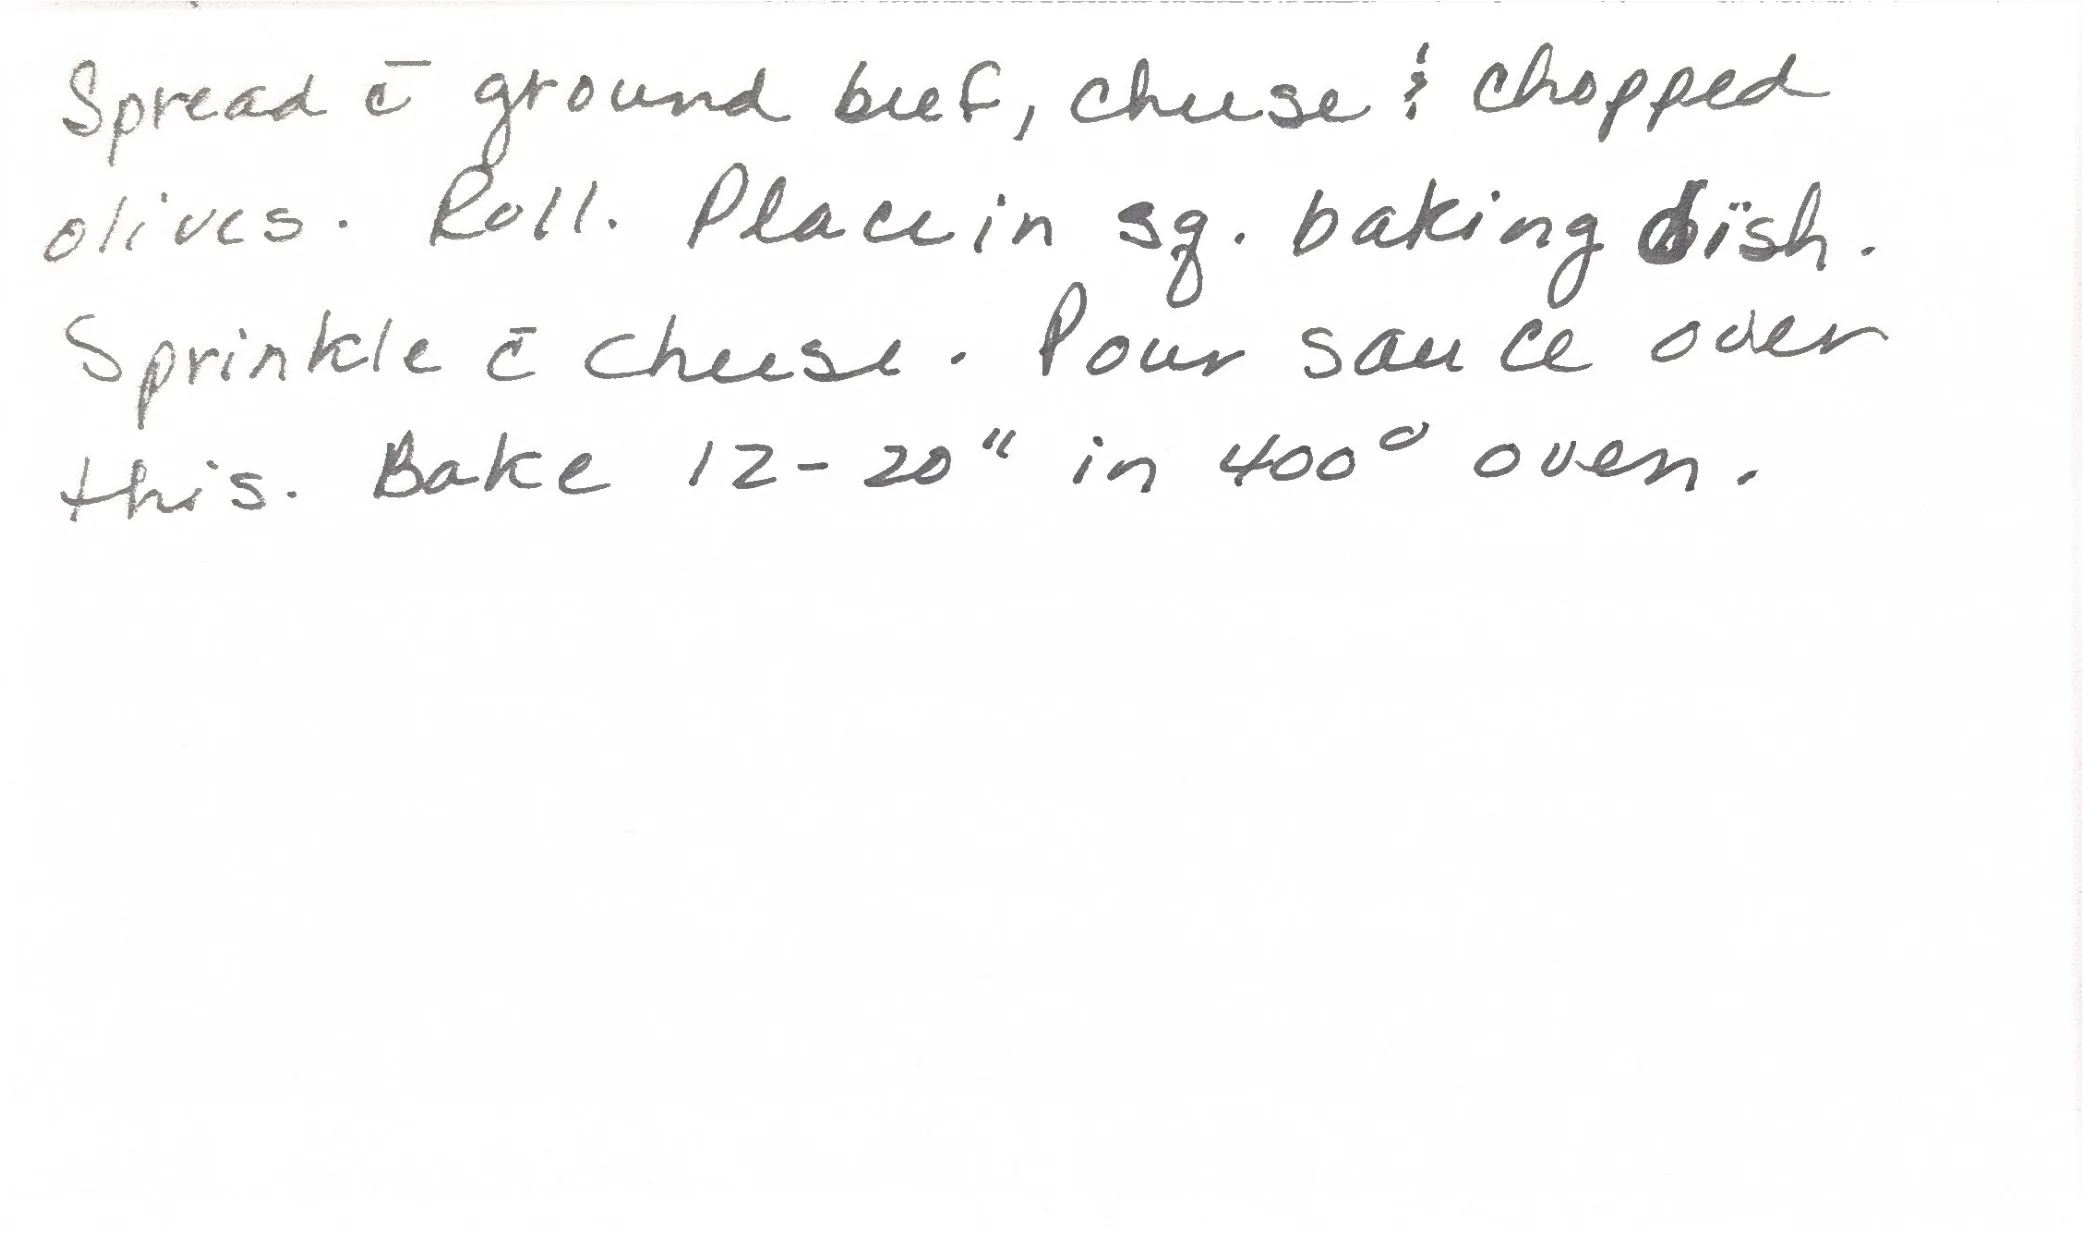 Spread c̄ ground beef, cheese & chopped
olives. Roll. Place in sq. baking dish.
Sprinkle c̄ cheese. Pour sauce over
this. Bake 12-20" in 400° oven.